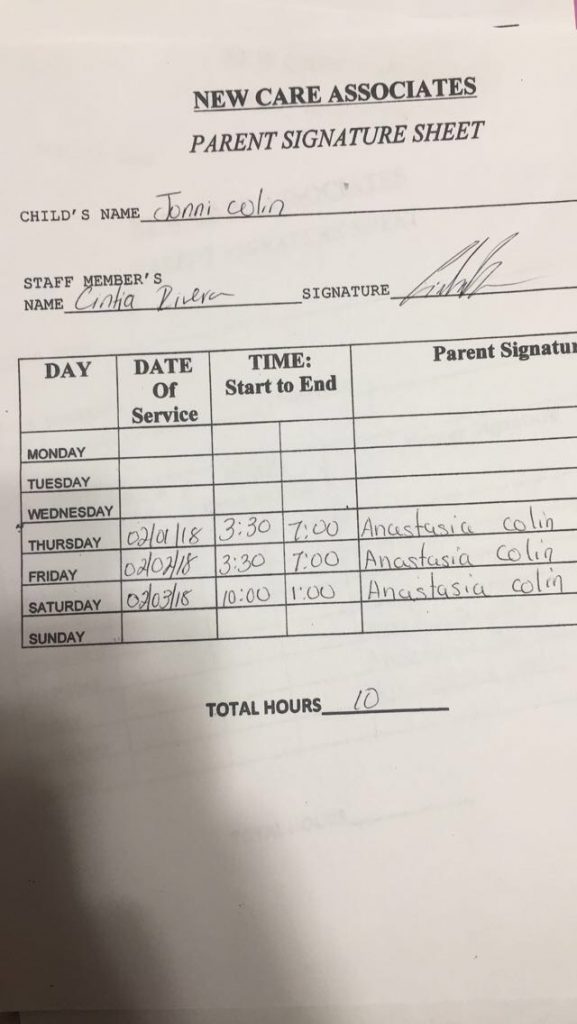 NEW CARE ASSOCIATES
PARENT SIGNATURE SHEET
CHILD'S NAME Jonni Colin
STAFF MEMBER'S
NAME Cintia Rivera SIGNATURE
DAY DATE Of Service TIME: Start to End Parent Signatu
MONDAY
TUESDAY
WEDNESDAY
THURSDAY 02/01/18 3:30 7:00 Anastasia Colin
FRIDAY 02/02/18 3:30 7:00 Anastasia Colin
SATURDAY 02/03/18 10:00 1:00 Anastasia Colin
SUNDAY
TOTAL HOURS 10